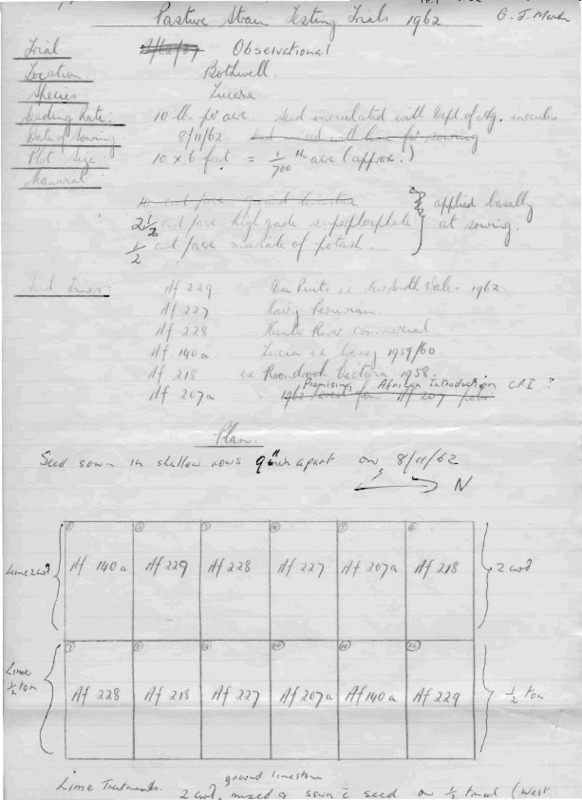 Pasture Strain Testing Trials 1962
G. J. Martin
Trial 2/62/37 Observational
Location Bothwell.
Species Lucerne
Seeding Rate: 10 lbs per acre seed inoculated with Dept. of Ag.
Date of Sowing 8/11/62 seed mixed with lime for sowing
Plot Size: 10 x 6 feet = 1/700 th acre (approx.)
Manurial
cwt/acre ground limestone
2 1/2 cwt/acre high grade superphosphate
1/2 cwt/acre muriate of potash.
applied basally
at sowing.
Seed Lines:
Af 229 Du Puits ex New South Wales 1962.
Af 227 Hairy Peruvian
Af 228 Hunter River commercial
Af 140a 1959/60
Af 218 ex Victoria 1958.
Promising African Introduction CPI ?
Af 207a 1962 Af 207
Plan.
Seed sown in shallow rows 9" inch apart on 8/11/62
N
1 2 3 4 5 6
Lime 2 cwt Af 140a Af 229 Af 228 Af 227 Af 207a Af 218 2 cwt
7 8 9 10 11 12
Lime
1/2 ton Af 228 Af 218 Af 227 Af 207a Af 140a Af 229 1/2 ton
ground limestone
Lime Treatments. 2 cwt, mixed & sown c̄ seed on 1/2 trial (West